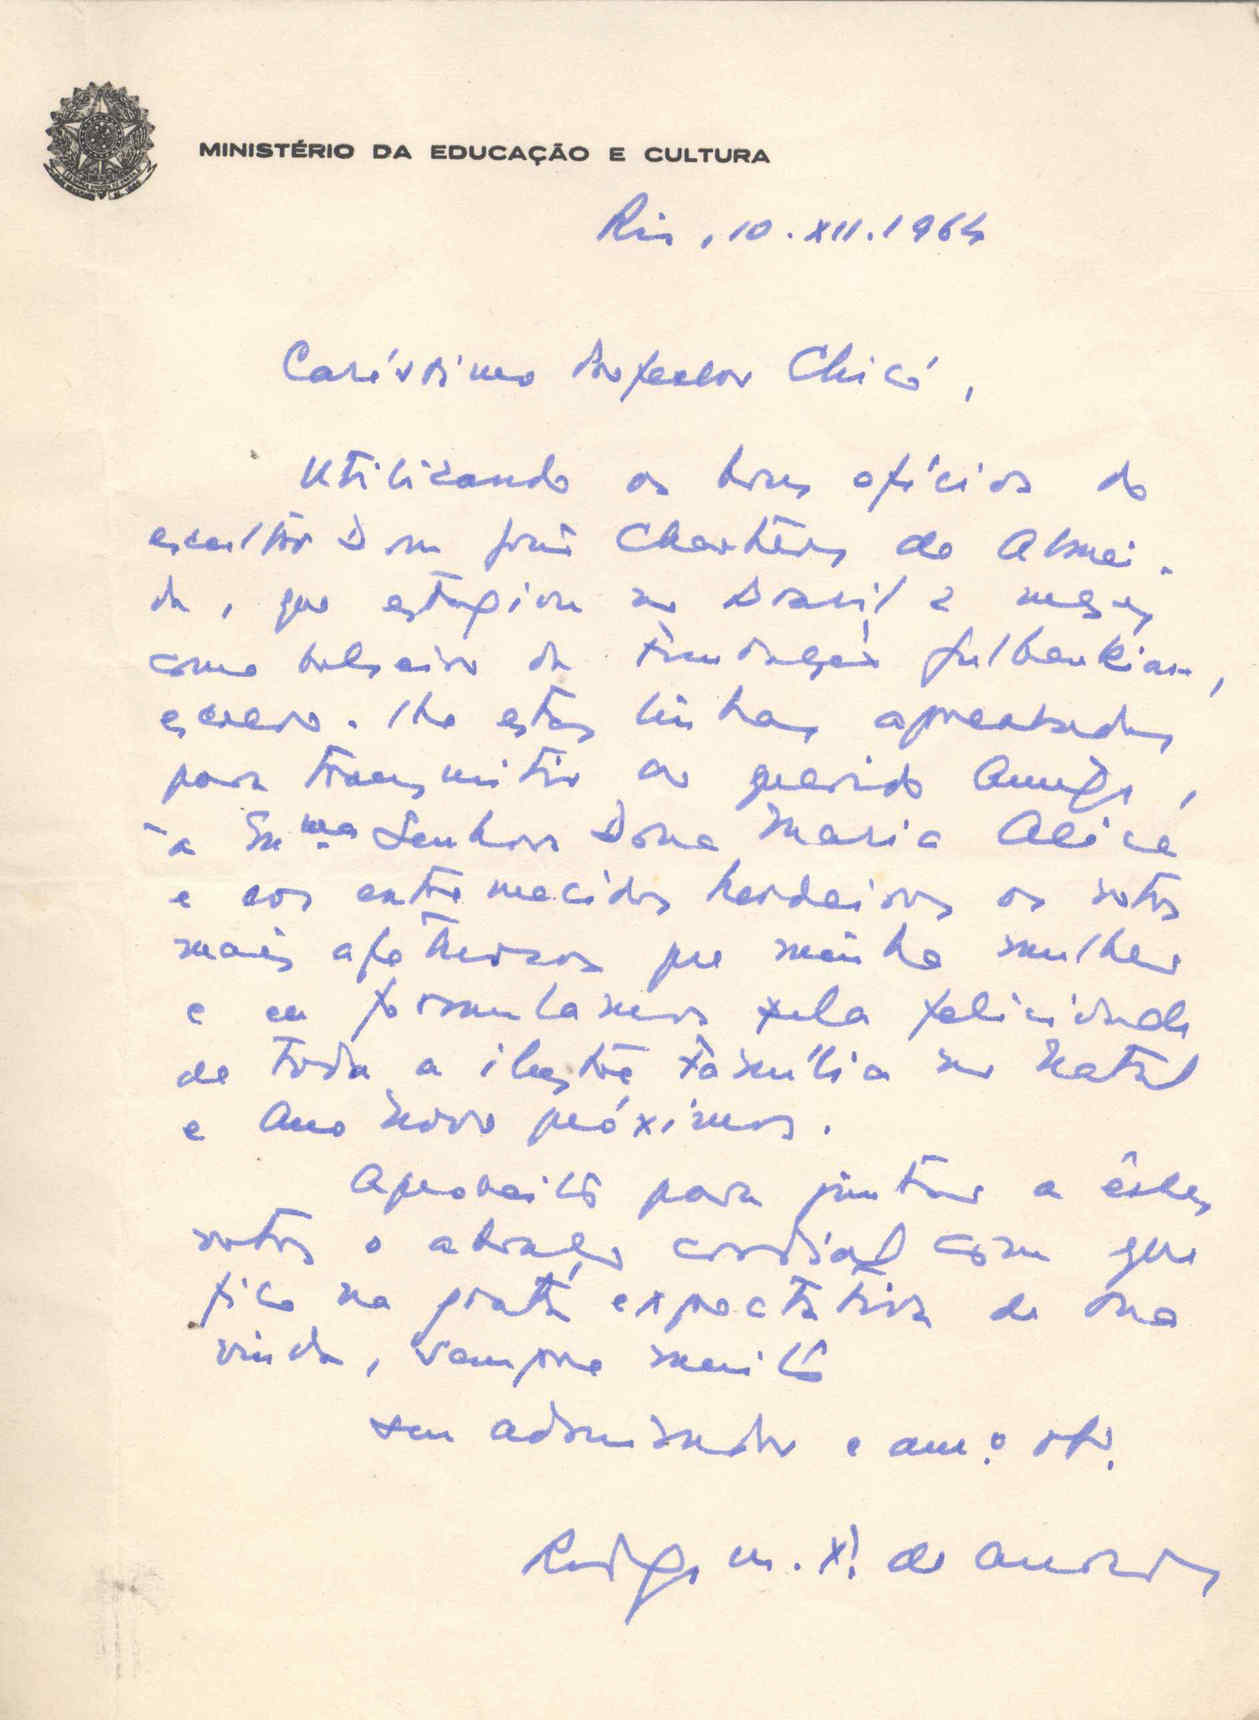 MINISTÉRIO DA EDUCAÇÃO E CULTURA
Rio, 10.XII.1964
Caríssimo Professor Chicó,
Utilizando os bons ofícios do
escultor Dom José Charters de Almei-
da, que estagiou no Brasil 2 meses
como bolseiro da Fundação Gulbenkian,
escrevo-lhe estas linhas apressadas
para transmitir ao querido Amigo,
à Exma Senhora Dona Maria Alice
e aos extremecidos herdeiros os votos
mais afetuosos que minha mulher
e eu formulamos pela felicidade
de toda a ilustre família no Natal
e Ano Novo próximos.
Aproveito para juntar a êsses
votos o abraço cordial com que
fico na grata expectativa de sua
vinda, sempre muito
seu admirador e am.º
Rodrigo M. F. de Andrade